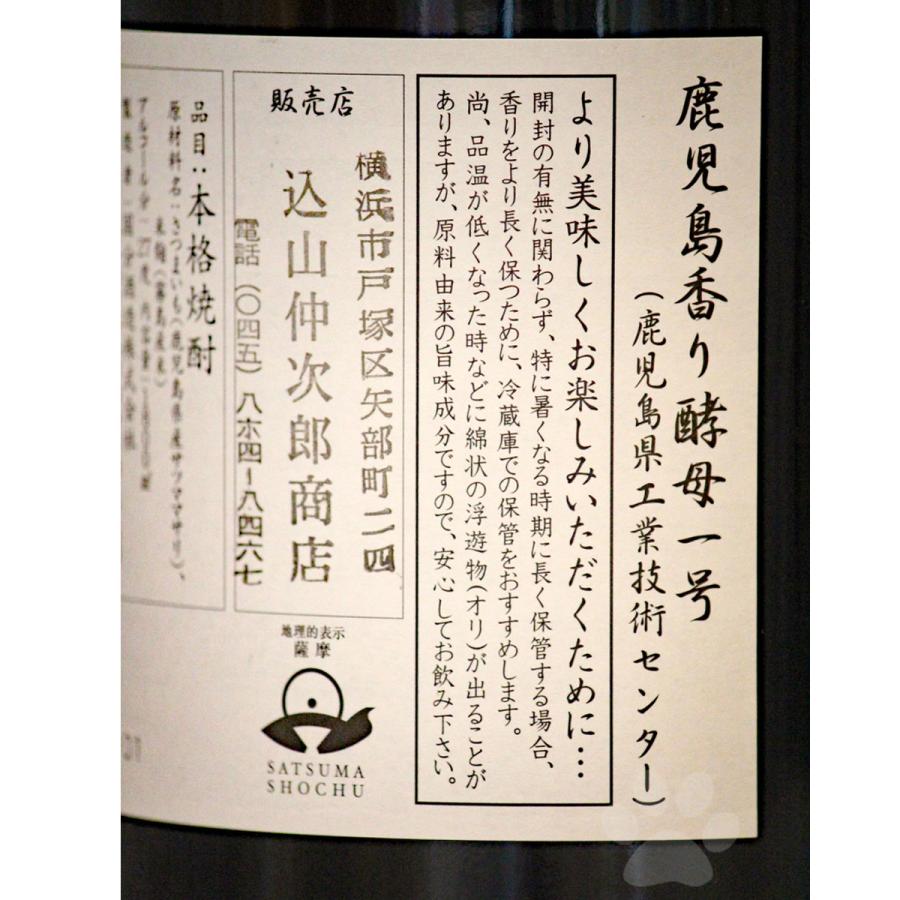 鹿児島香り酵母一号
(鹿児島県工業技術センター)
より美味しくお楽しみいただくために…
開封の有無に関わらず、特に暑くなる時期に長く保管する場合、
香りをより長く保つために、冷蔵庫での保管をおすすめします。
尚、品温が低くなった時などに綿状の浮遊物(オリ)が出ることが
ありますが、原料由来の旨味成分ですので、安心してお飲み下さい。
販売店
横浜市戸塚区矢部町二四
込山仲次郎商店
電話 (〇四五) 八六四ー八四六七
地理的表示
薩摩
SATSUMA
SHOCHU
品目:本格焼酎
原材料名:さつまいも(鹿児島県産サツママサリ)、